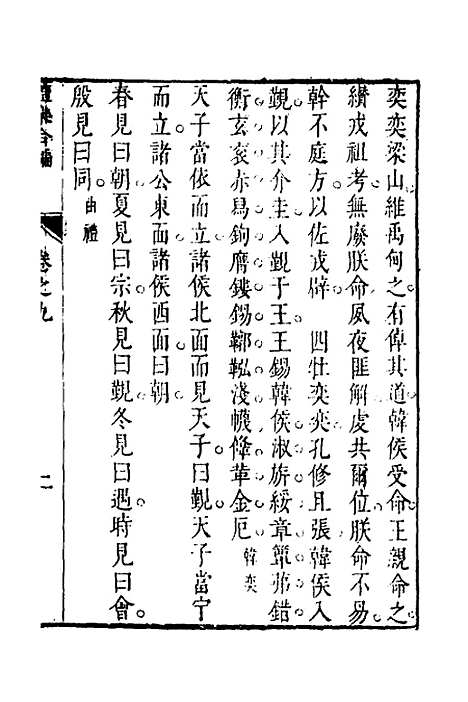 奕奕梁山維禹甸之有倬其道韓侯受命王親命之
纘戎祖考無廢朕命夙夜匪解虔共爾位朕命不易
幹不庭方以佐戎辟 四牡奕奕孔修且張韓侯入
覲以其介圭入覲于王王錫韓侯淑旂綏章簟茀錯
衡玄袞赤舄鉤膺鏤錫鞹鞃淺幭鞗革金厄 韓奕
天子當依而立諸侯北面而見天子曰覲天子當宁
而立諸公東面諸侯西面曰朝
春見曰朝夏見曰宗秋見曰覲冬見曰遇時見曰會
殷見曰同 曲禮
合編
卷之九
二